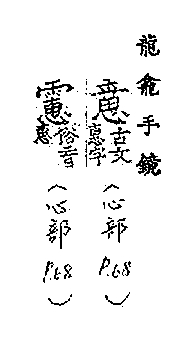 龍龕手鏡
古文
惠字
(心部 P.68)
俗音
惠
(心部 P.68)